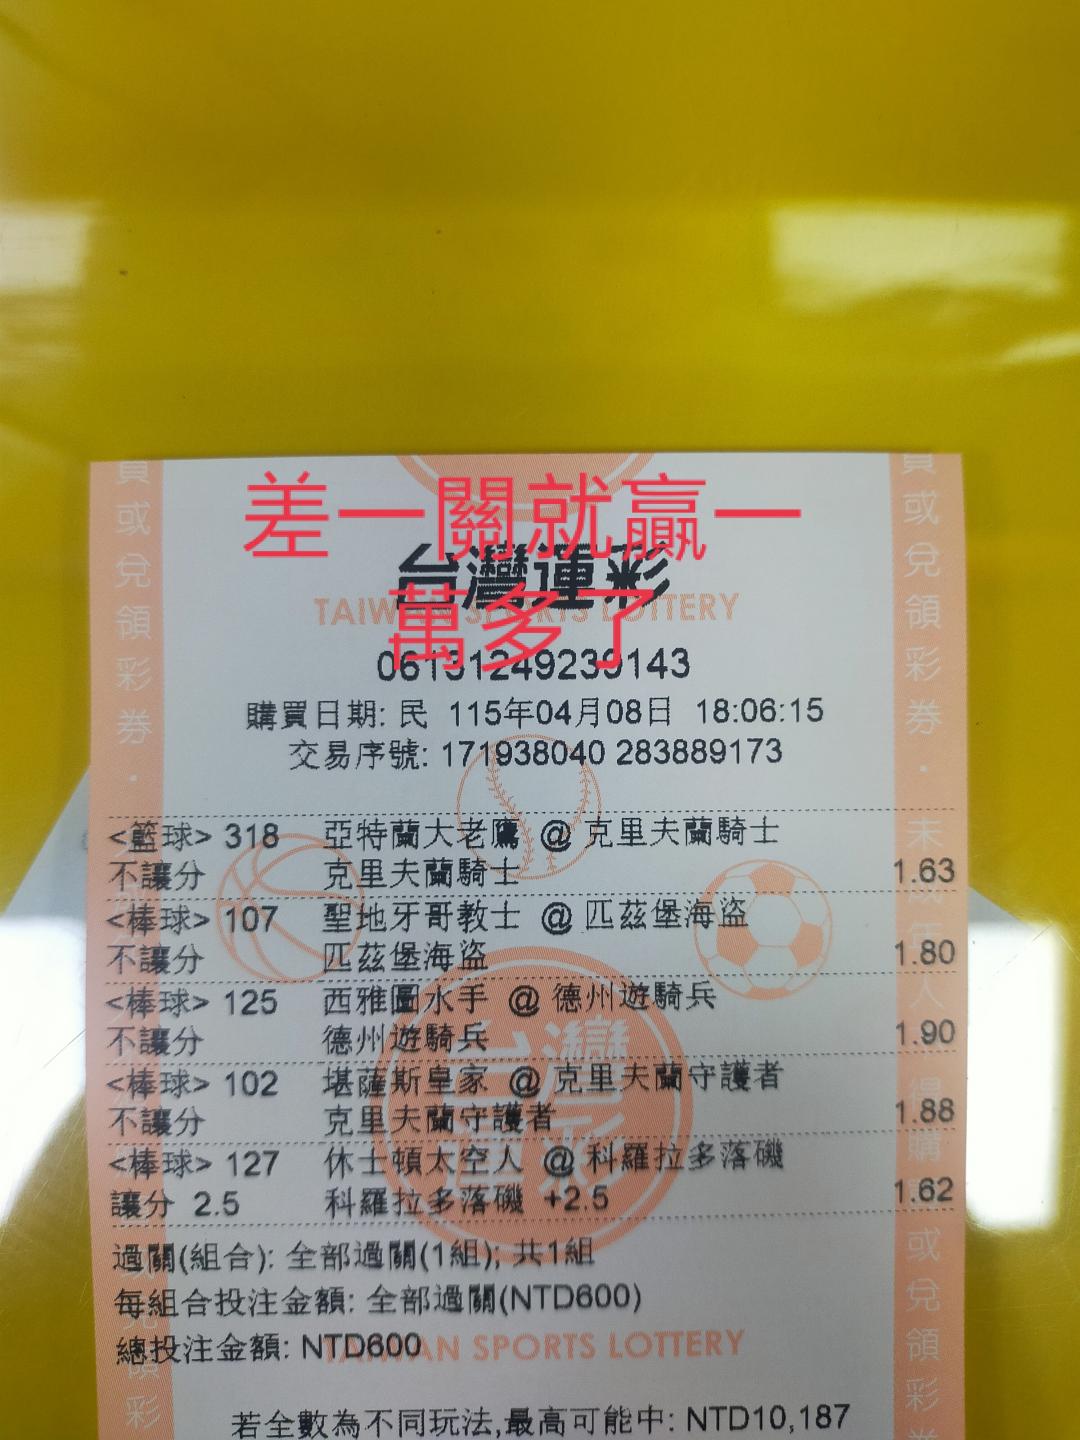 差一關就贏一
萬多了
台灣運彩
TAIWAN SPORTS LOTTERY
06131249239143
購買日期: 民 115年04月08日 18:06:15
交易序號: 171938040 283889173
<籃球> 318 亞特蘭大老鷹 @ 克里夫蘭騎士
不讓分 克里夫蘭騎士 1.63
<棒球> 107 聖地牙哥教士 @ 匹茲堡海盜
不讓分 匹茲堡海盜 1.80
<棒球> 125 西雅圖水手 @ 德州遊騎兵
不讓分 德州遊騎兵 1.90
<棒球> 102 堪薩斯皇家 @ 克里夫蘭守護者
不讓分 克里夫蘭守護者 1.88
<棒球> 127 休士頓太空人 @ 科羅拉多落磯
讓分 2.5 科羅拉多落磯 +2.5 1.62
過關(組合): 全部過關(1組); 共1組
每組合投注金額: 全部過關(NTD600)
總投注金額: NTD600
TAIWAN SPORTS LOTTERY
若全數為不同玩法,最高可能中: NTD10,187
台灣運彩
買或兌領彩券．
領彩
買或兌領彩券．未成年人得購買或兌領彩券